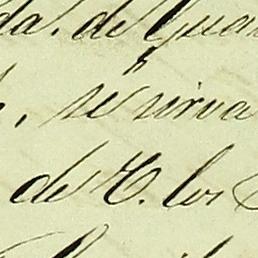 da. de Gua
se sirva
de C. los